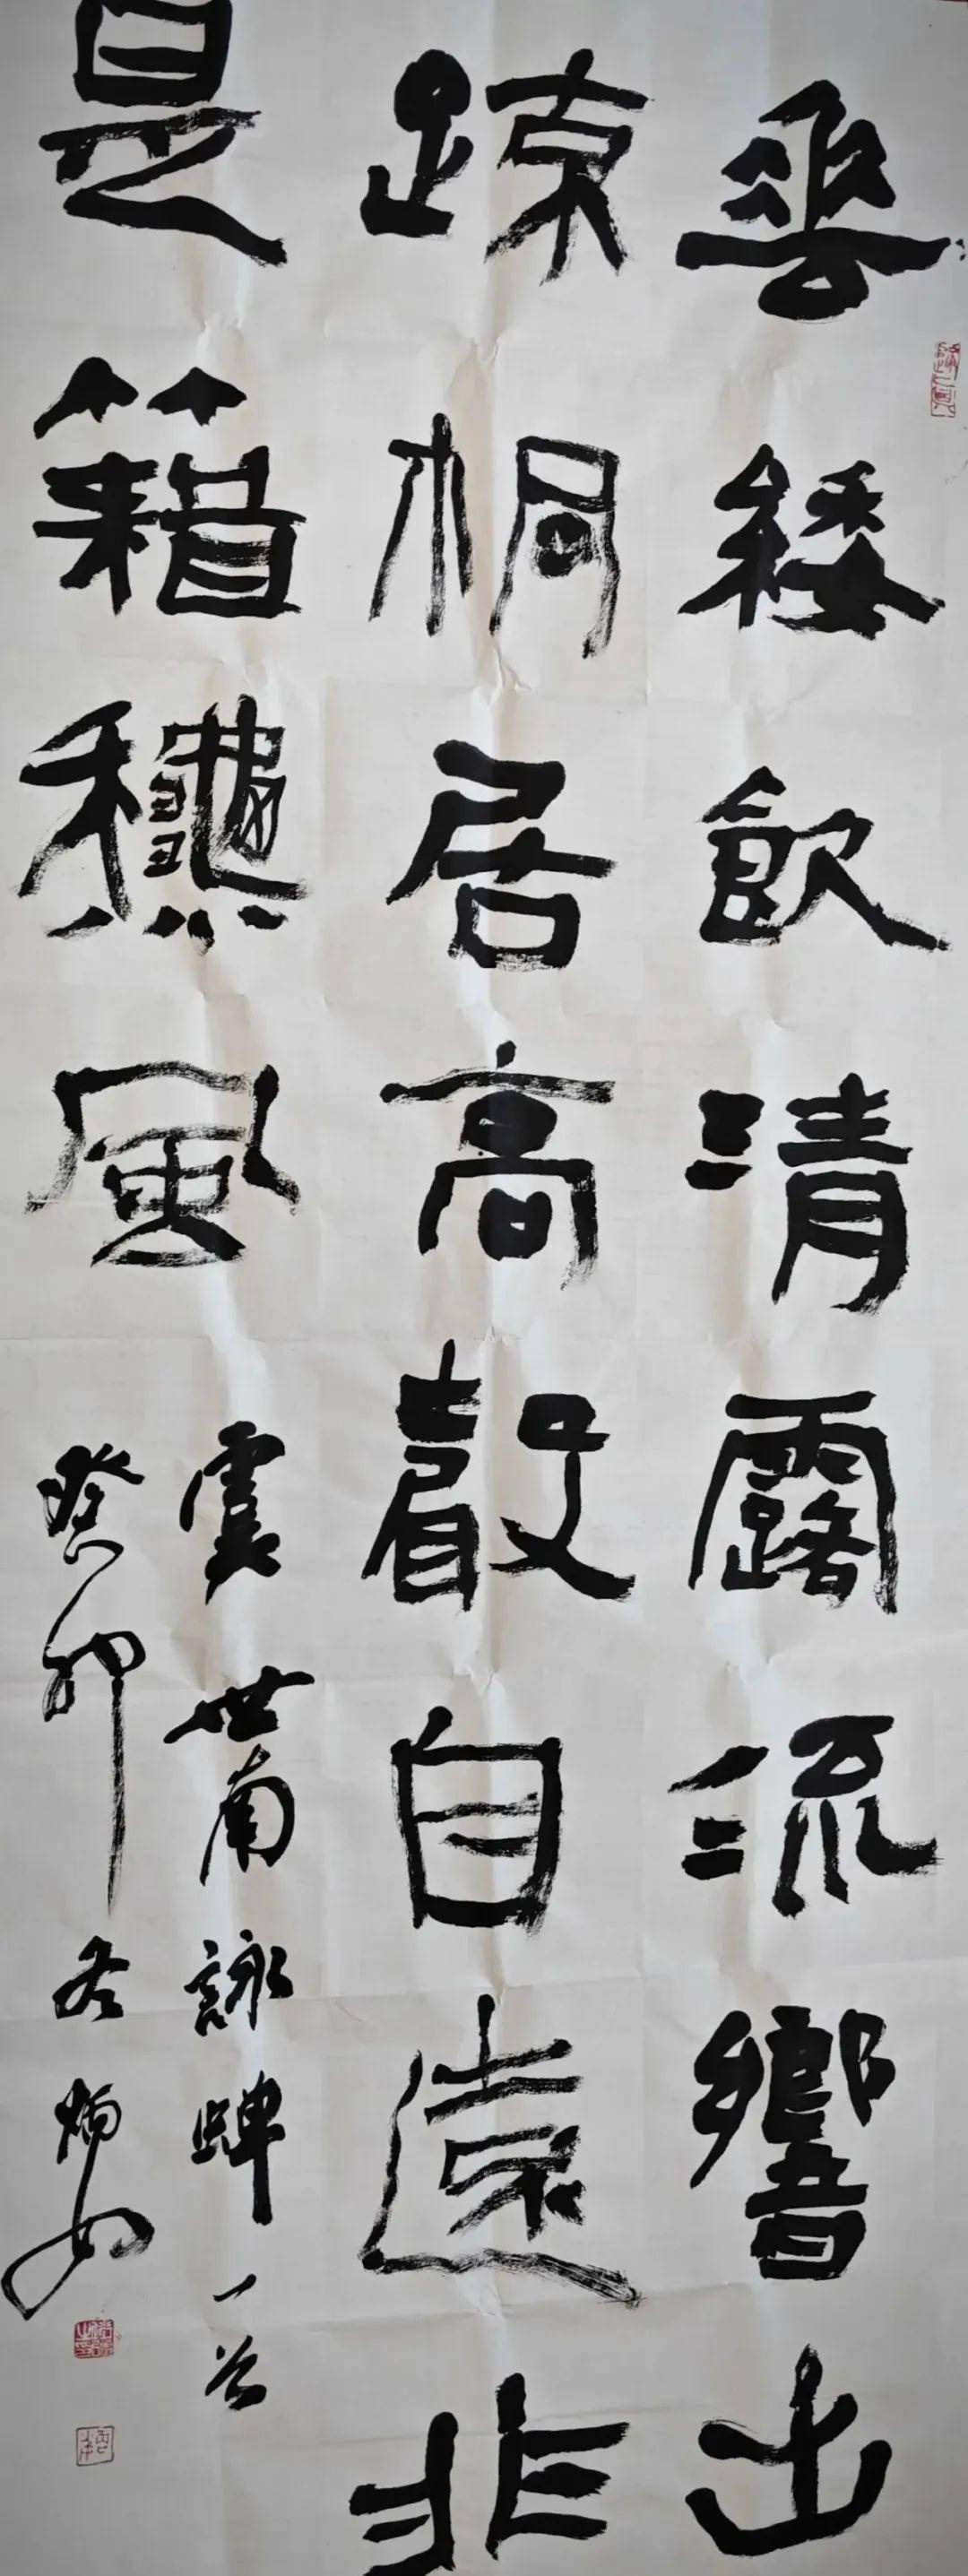 垂緌飲清露流響出
疎桐居高聲自遠非
是籍龝風
虞世南詠蟬一首
癸卯冬